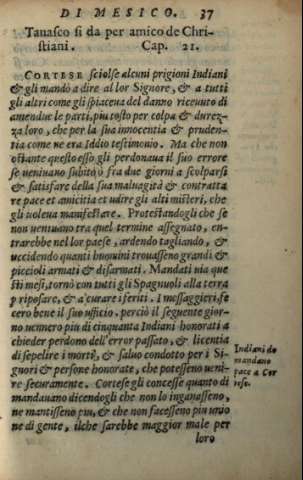 DI MESICO. 37
Tauasco si da per amico de Chri-
stiani. Cap. 21.
CORTESE sciolse alcuni prigioni Indiani
& gli mandò a dire al lor Signore, & a tutti
gli altri come gli spiaceua del danno riceuuto di
amendue le parti, piu tosto per colpa & durez-
za loro, che per la sua innocentia & pruden-
tia come ne era Iddio testimonio. Ma che non
ostante questo esso gli perdonaua il suo errore
se ueniuano subito ò fra due giorni a scolparsi
& satisfare della sua maluagità & contratta
re pace et amicitia et udire gli alti misteri, che
gli uoleua manifestare. Protestandogli che se
non ueniuano tra quel termine assegnato, en-
trarebbe nel lor paese, ardendo tagliando, &
uccidendo quanti huomini trouasseno grandi &
piccioli armati & disarmati. Mandati uia que
sti mesi, tornò con tutti gli Spagnuoli alla terra
p riposare, & a curare i feriti. I messaggieri, fe
cero bene il suo ufficio. perciò il seguente gior-
no uennero piu di cinquanta Indiani honorati a
chieder perdono dell'error passato, & licentia
di sepelire i morti, & saluo condotto per i Si-
gnori & persone honorate, che potesseno ueni-
re securamente. Cortese gli concesse quanto di
mandauano dicendogli che non lo inganasseno,
ne mentisseno piu, & che non facesseno piu unio
ne di gente, ilche sarebbe maggior male per
loro
Indiani do
mandano
pace a Cor
tese.